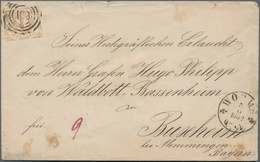 Seiner Hochgräflichen Erlaucht
dem Herrn Grafen Hugo Philipp
von Waldbott-Bassenheim
frei.
9
Buxheim
bei Memmingen
Bayern